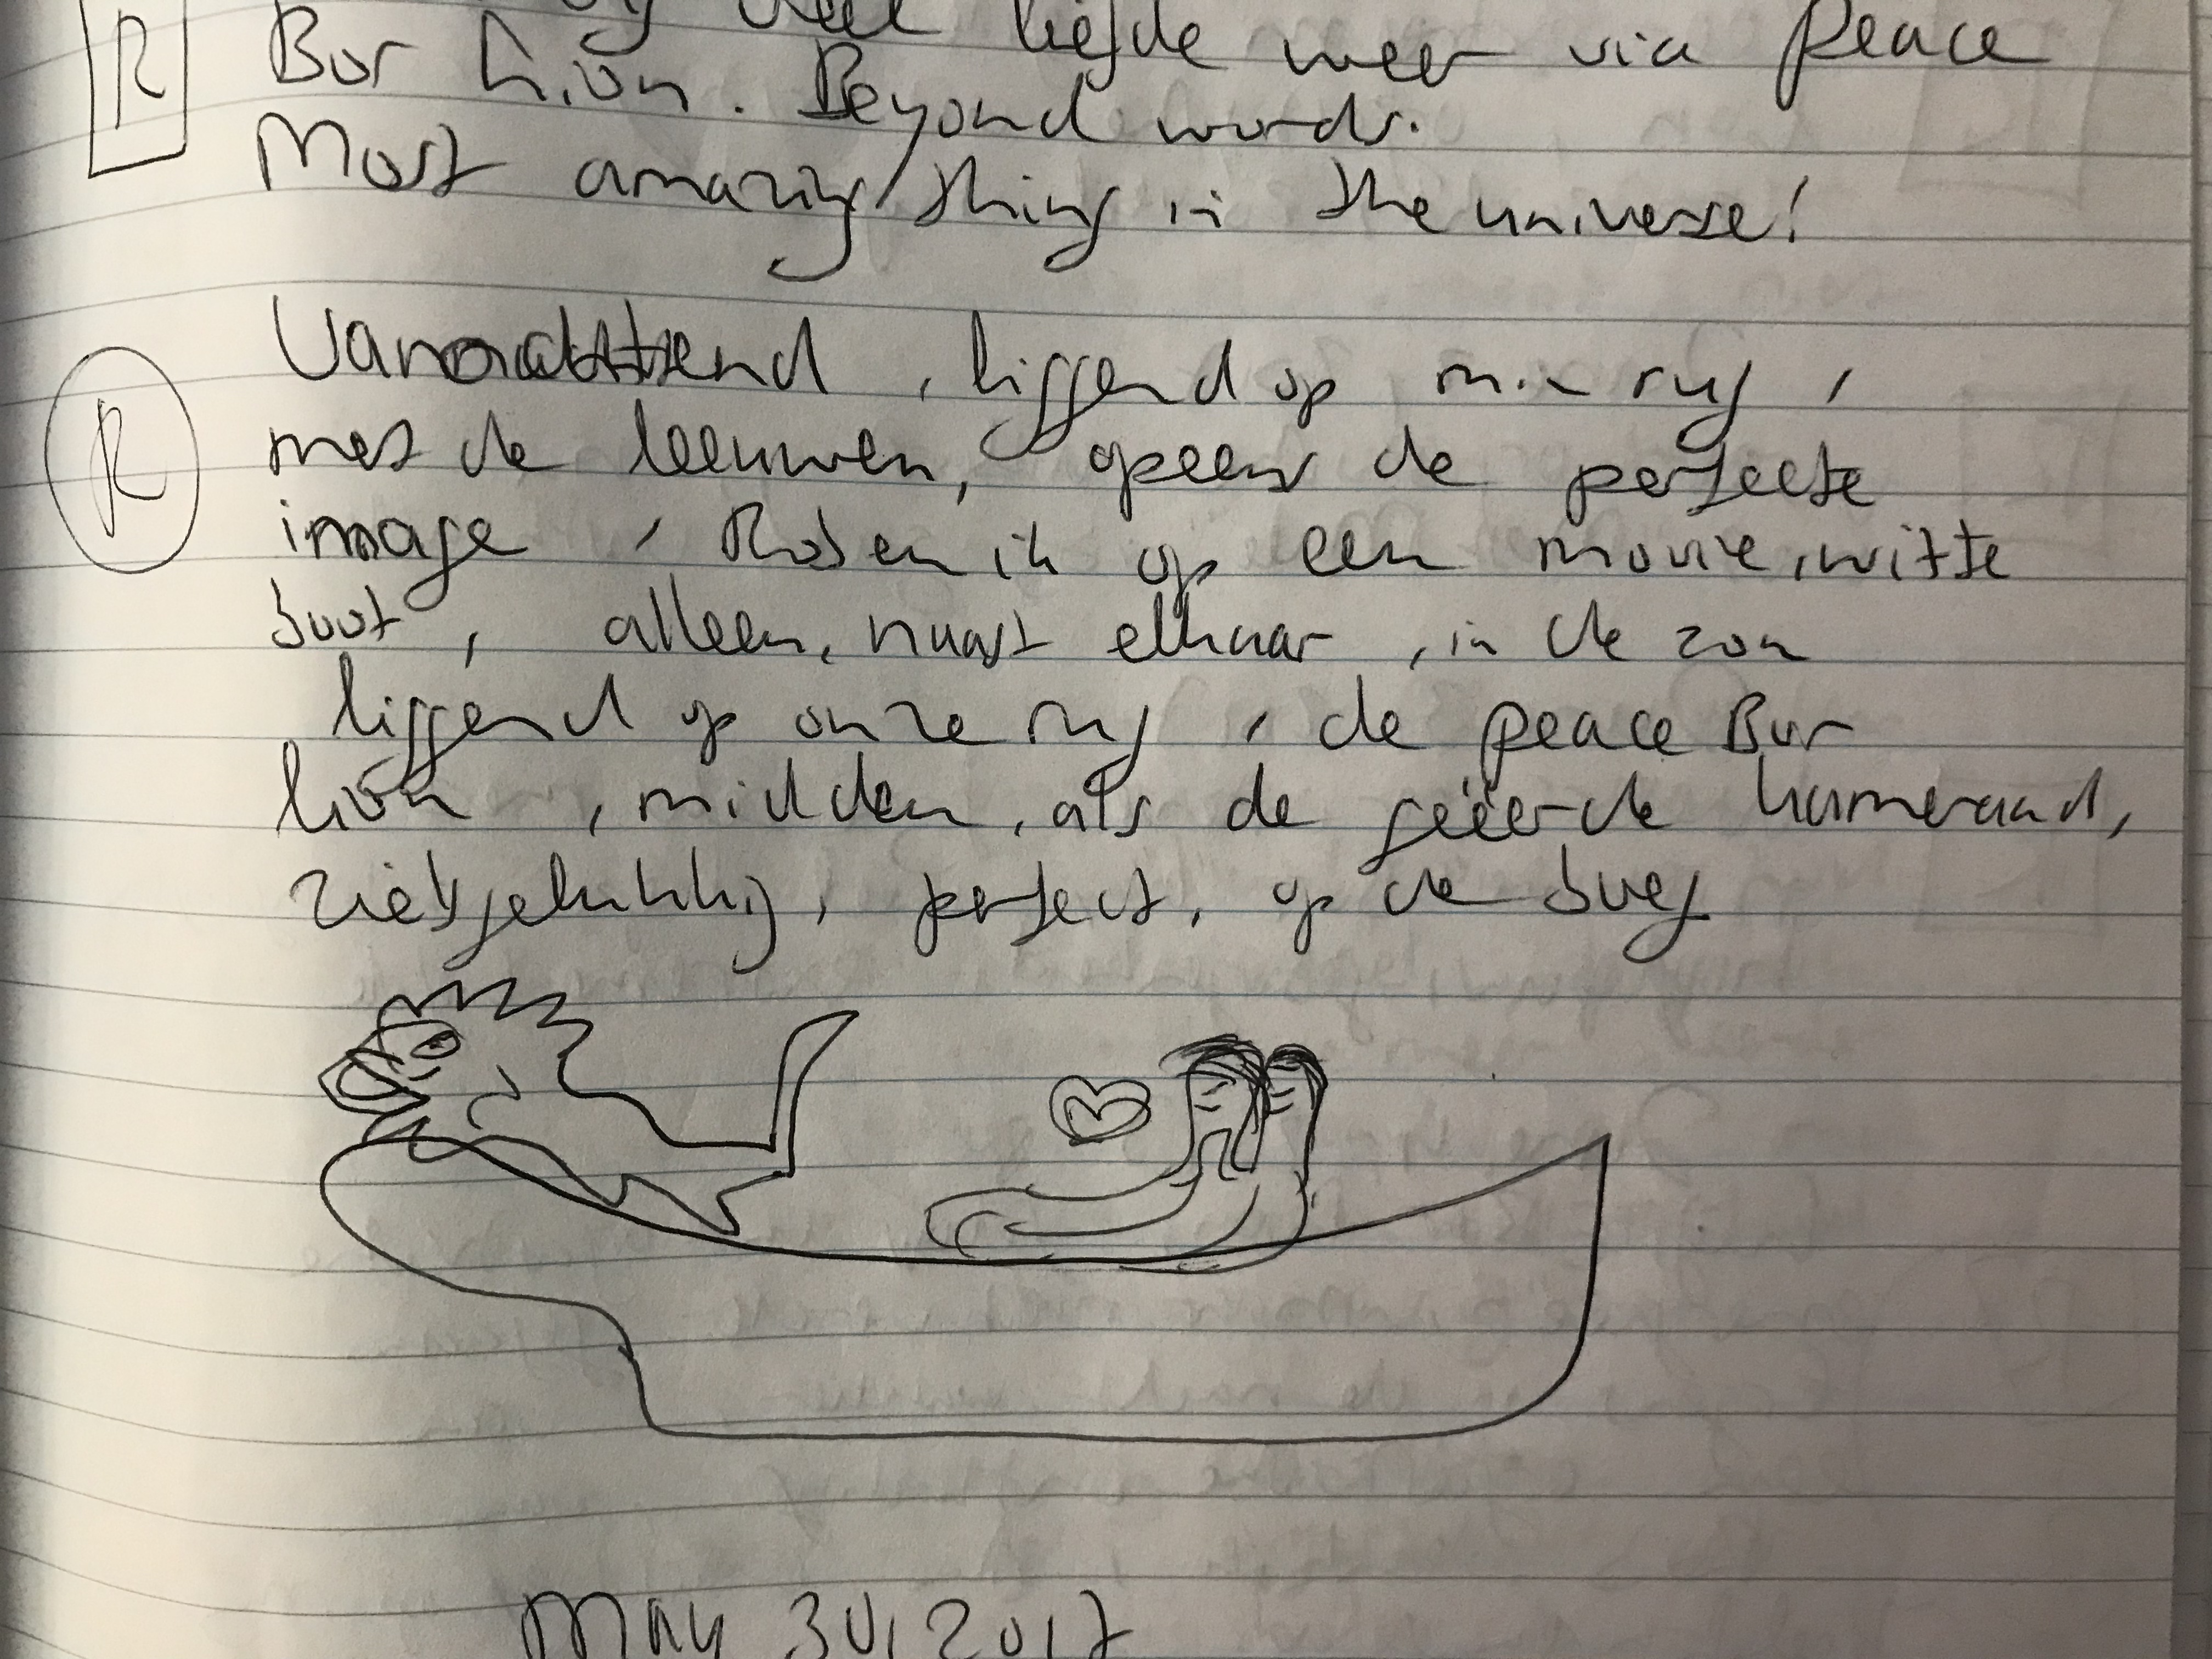 R
veel liefde weer via peace
Bur Lion. Beyond words.
Most amazing thing in the universe!
R
Vanochtend, liggend op mijn rug,
met de leeuwen, opeens de perfecte
image, Rob en ik op een mooie, witte
boot, alleen, naast elkaar, in de zon
liggend op onze rug, de peace Bur
lion, midden, als de geëerde kameraad,
zielsgelukkig, perfect, op de boeg
May 30, 2017